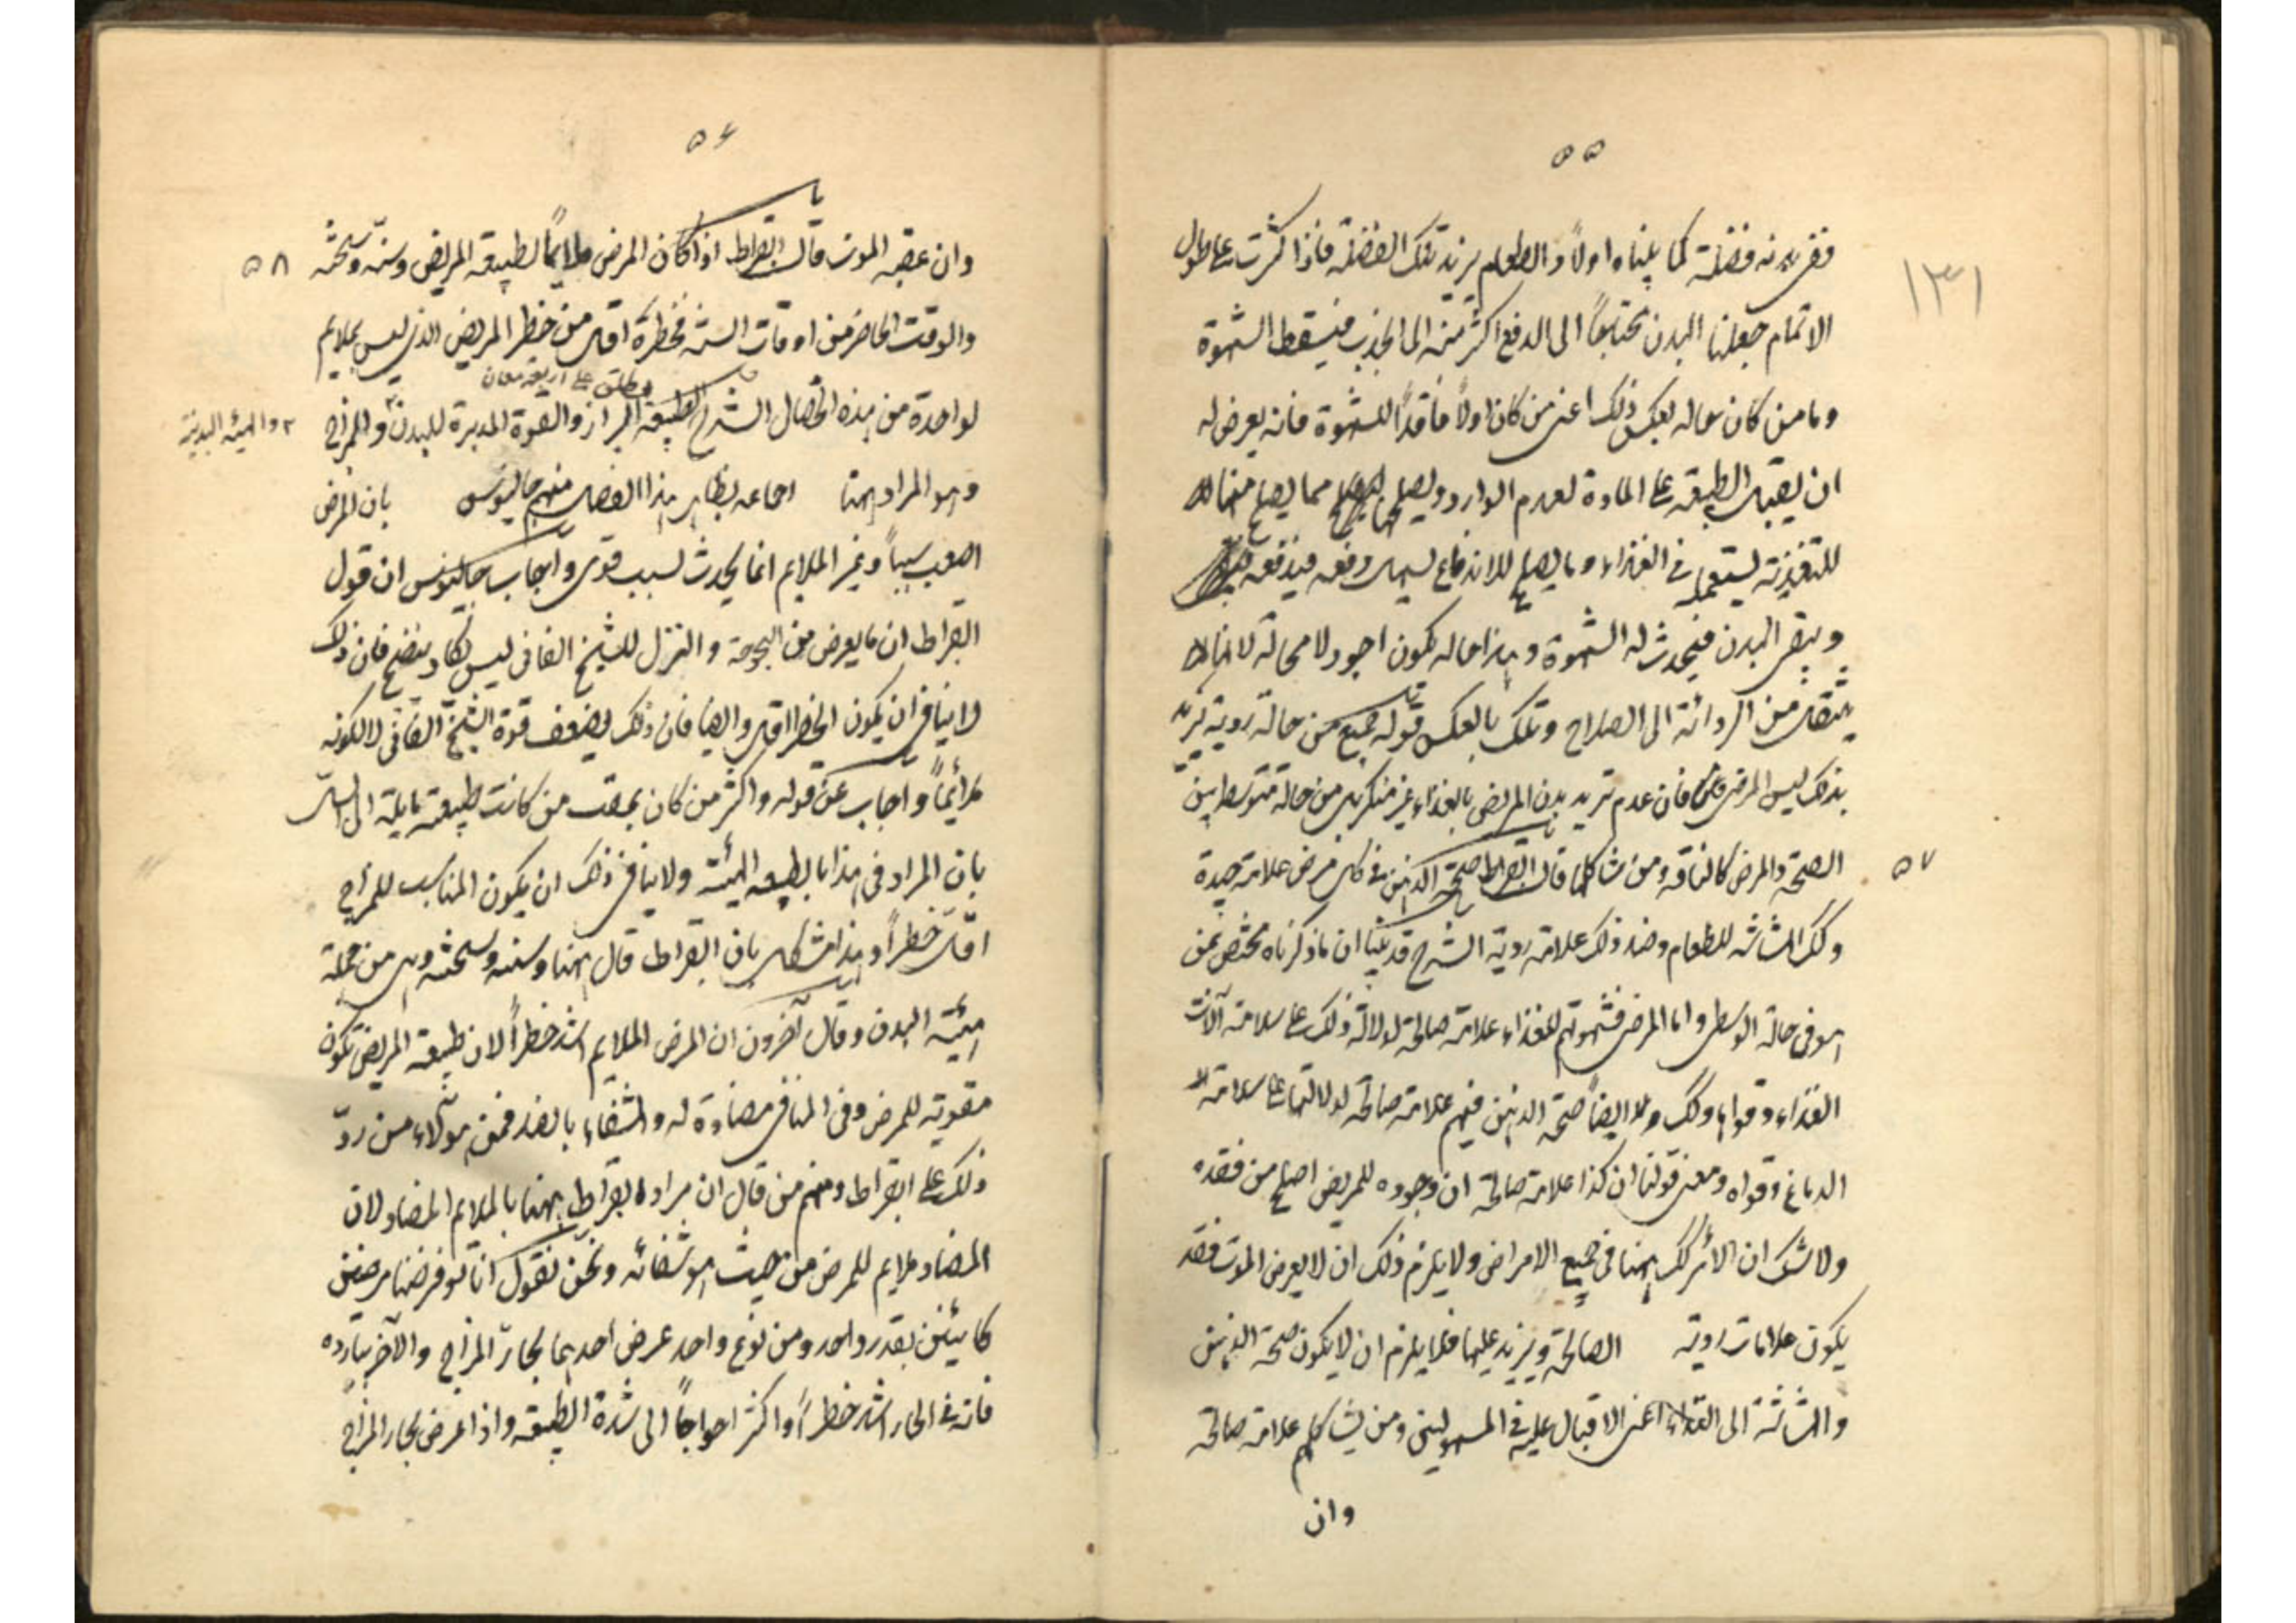 ٥٥
١٣١
ففى بدنه فضلة كما بيناه اولاً والطعام يزيد تلك الفضلة فاذا كثرت على طول
الاتمام جعلنا البدن محتاجاً الى الدفع اكثر منه الى الجذب فيسقط الشهوة
وما من كان حاله بعكس ذلك اعنى من كان اولاً فاقداً للشهوة فانه يعرض له
ان يقبل الطبيعة على المادة لعدم الوارد ويصلح مما يصلح منها
للتغذية يستعمله فى الغذاء وما يصلح للاندفاع يسهل دفعه فيدفعه
وينقى البدن فيحدث له الشهوة وهذا حاله يكون اجود لا محالة لانها
ينتقل من الردائة الى الصلاح وتلك بالعكس قوله جميع من حالة ردية تزيد
بذلك ليس المرضى فان عدم تزيد بدن المريض بالغذاء غير منكر بل من حالة متوسط بين
الصحة والمرض كالناقه ومن شاكلها قال ابقراط صحة الذهن فى كل مرض علامة جيدة
٥٧
وكك الهشاشه للطعام وضد ذلك علامة ردية الشرح قد بينا ان ما ذكرناه مختص بمن
هو فى حالة الوسطى واما المرضى فشهوتهم للغذاء علامة صالحة لدلالة ذلك على سلامة آلات
الغذاء وقواها وكك ايضاً صحة الذهن فيهم علامة صالحة لدلالتها على سلامة
الدماغ وقواه ومعنى قولنا ان كذا علامة صالحة ان وجوده للمريض اصلح من فقده
ولا شك ان الامر كك ههنا فى جميع الامراض ولا يلزم ذلك ان لا يعرض الموت فقد
يكون علامات ردية الصالحة ويزيد عليها فلا يلزم ان لا يكون صحة الذهن
والهشاشة الى الغذاء اعنى الاقبال عليه فى المسهولين ومن يشاكلهم علامة صالحة
وان
٥٦
وان عقبه الموت قال ابقراط اذا كان المرض ملايماً لطبيعة المريض وسنه وسحنته
٥٨
والوقت الحاضر من اوقات السنه فخطره اقل من خطر المريض الذى ليس بملايم
يطلق على اربعة معان
لواحدة من هذه الخصال الشرح الطبيعة البراز والقوة المدبرة للبدن والمزاج
والهيئه البدنية
وهو المراد ههنا اجاعه بظاهر هذا الفصل منهم جالينوس بان المرض
اصعب سبباً وغير الملايم انما يحدث لسبب قوى واجاب جالينوس ان قول
ابقراط ان ما يعرض من البحوحة والنزل للشيخ الفانى ليس يكاد ينضج فان ذلك
لا ينافى ان يكون الخطر اقل وايضا فان ذلك لضعف قوة الشيخ الفانى لا لكونه
ملائماً واجاب عن قوله واكثر من كان بعقب من كانت طبيعته مايلة الى السل
بان المراد فى هذا بالطبيعه الهيئة ولا ينافى ذلك ان يكون المناسب للمزاج
اقل خطراً وهذا مشكل بان ابقراط قال ههنا وسنه وسحنته وهى من جملة
هيئة البدن وقال آخرون ان المرض الملايم اشد خطراً لان طبيعة المريض تكون
مقوية للمرض وفى المنافى مضادة له والشفاء بالضد فمن هؤلاء من ردّ
ذلك على ابقراط ومنهم من قال ان مراد ابقراط ههنا بالملايم المضاد لان
المضاد ملايم للمرض من حيث هو شفائه ونحن نقول انا لو فرضنا مرضين
كائنين بقدر واحد ومن نوع واحد عرض احدهما بحار المزاج والآخر ببارده
فانه فى الحار اشد خطراً واكثر احواجاً الى شدة الطبيعة واذا عرض بحار المزاج